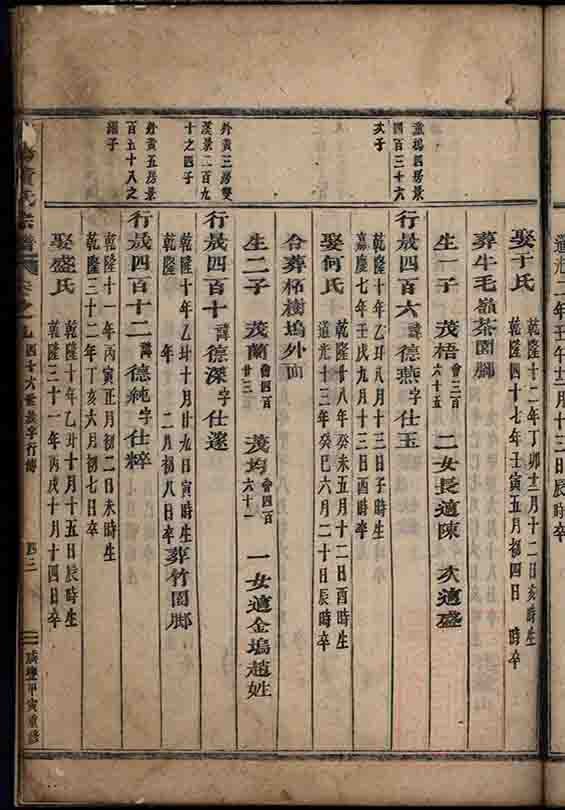 道光二年壬
娶于氏 乾隆十二年丁卯十二月十二日亥時生
乾隆四十七年壬寅五月初四日 時卒
葬牛毛嶺茶園脚
生一子 茂梧 會三百六十五 二女長適陳 次適盛
重塢四房景四百三十六次子
行晟四百六 諱德燕字仕玉
乾隆十年乙丑八月十三日子時生
嘉慶七年壬戌九月十三日酉時卒
娶何氏 乾隆廿八年癸未五月十二日酉時生
道光十三年癸巳六月二十日辰時卒
合葬栢樹塢外面
生二子 茂蘭 會四百廿三 茂均 會四百六十一 一女適金塢趙姓
外黃三房雙溪景二百九十之四子
行晟四百十 諱德深字仕邃
乾隆十年乙丑十月廿九日寅時生
乾隆 年 二月初八日卒 葬竹園脚
外黃五房景百五十八之繼子
行晟四百十二 諱德純字仕粹
乾隆十一年丙寅正月初二日未時生
乾隆三十二年丁亥六月初七日卒
娶盛氏 乾隆十年乙丑十月十五日辰時生
乾隆三十一年丙戌十月十四日卒
黃氏宗譜 卷之九 四十六世晟字行傳 四三 咸豐甲寅重修